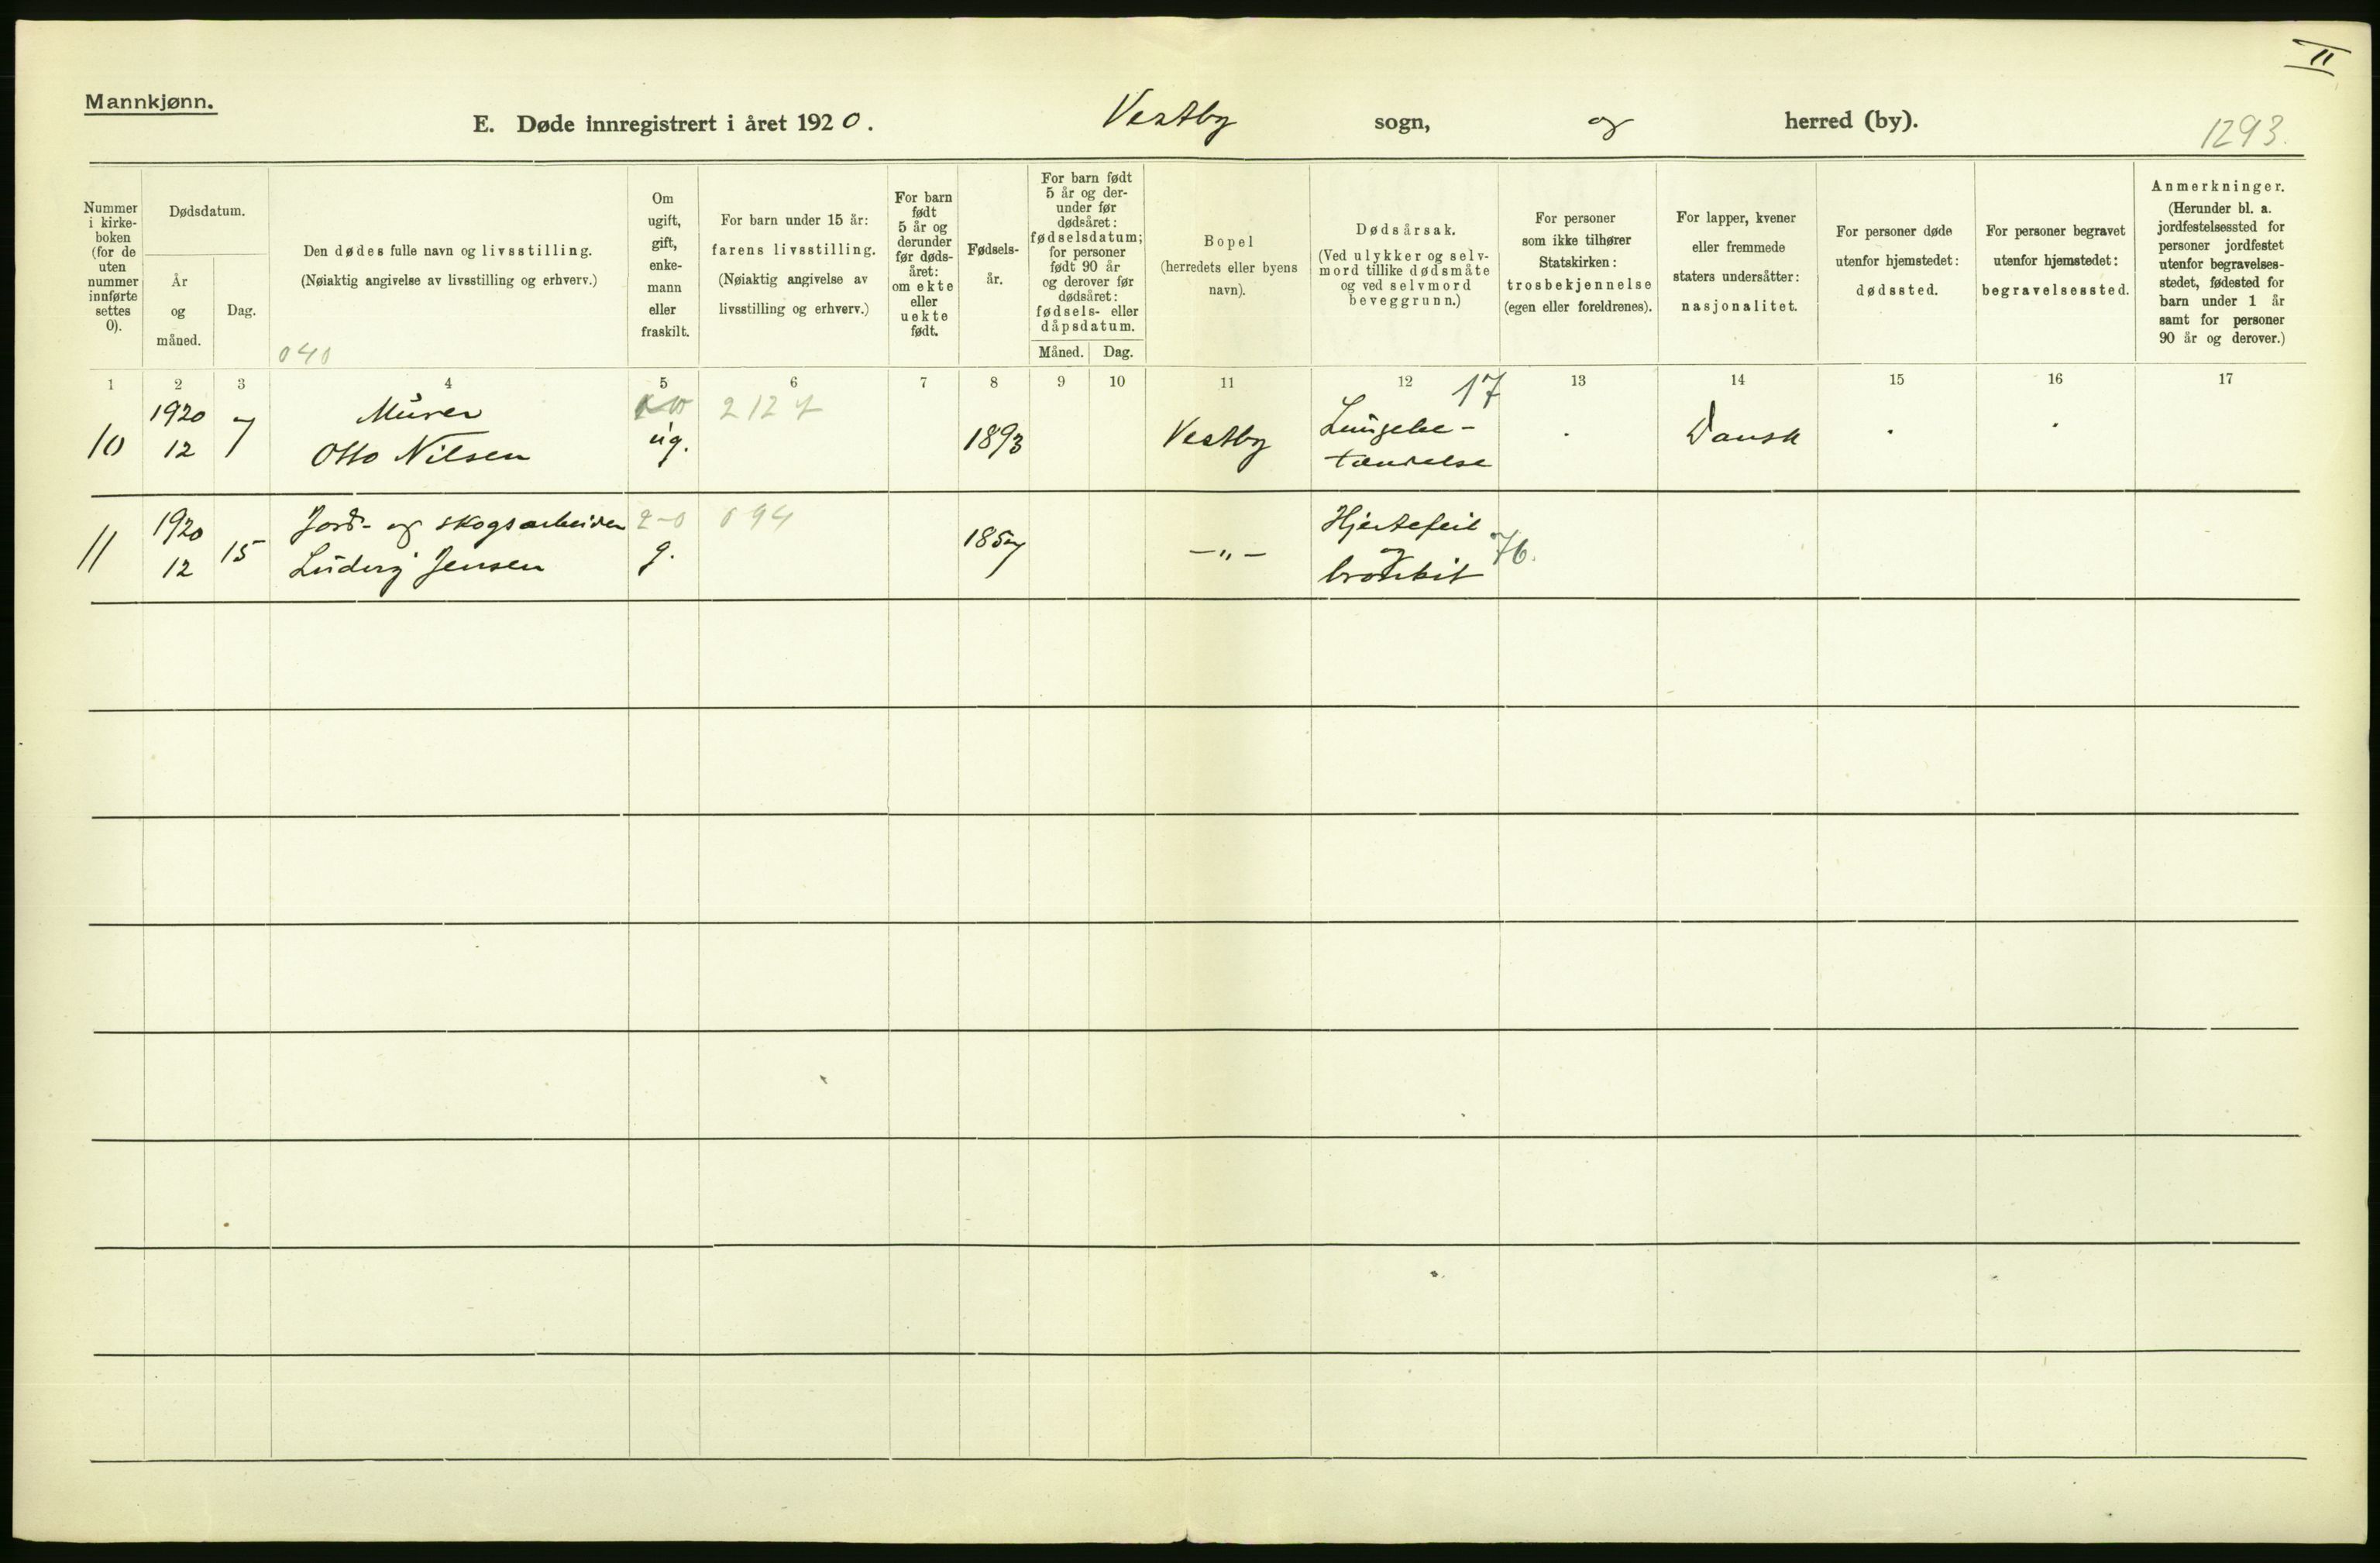 II
Mannkjønn.
E. Døde innregistrert i året 1920. Vestby sogn, og herred (by).
1293.
Nummer i kirke-boken (for de uten nummer innførte settes 0).
Dødsdatum.
År og måned.
Dag.
Den dødes fulle navn og livsstilling.
(Nøiaktig angivelse av livsstilling og erhverv.)
040
Om ugift, gift, enke-mann eller fraskilt.
For barn under 15 år:
farens livsstilling.
(Nøiaktig angivelse av
livsstilling og erhverv.)
For barn født 5 år og derunder før døds-året: om ekte eller uekte født.
Fødsels-
år.
For barn født
5 år og der-
under før
dødsåret:
fødselsdatum;
for personer
født 90 år
og derover før
dødsåret:
fødsels- eller
dåpsdatum.
Måned. Dag.
Bopel
(herredets eller byens
navn).
Dødsårsak.
(Ved ulykker og selv-
mord tillike dødsmåte
og ved selvmord
beveggrunn.)
For personer
som ikke tilhører
Statskirken:
trosbekjennelse
(egen eller foreldrenes).
For lapper, kvener
eller fremmede
staters undersåtter:
nasjonalitet.
For personer døde
utenfor hjemstedet:
dødssted.
For personer begravet
utenfor hjemstedet:
begravelsessted.
Anmerkninger.
(Herunder bl. a.
jordfestelsessted for
personer jordfestet
utenfor begravelses-
stedet, fødested for
barn under 1 år
samt for personer
90 år og derover.)
1 2 3 4 5 6 7 8 9 10 11 12 13 14 15 16 17
10 1920 12 7 Murer
Otto Nilsen
ug. 2127 1893 Vestby
17
Lungebe-
tændelse
Dansk
11 1920 12 15 Jord- og skogsarbeider
Ludvig Jensen
2-0
g. 094 1857 -„-
Hjertefeil
og
bronkit
76.